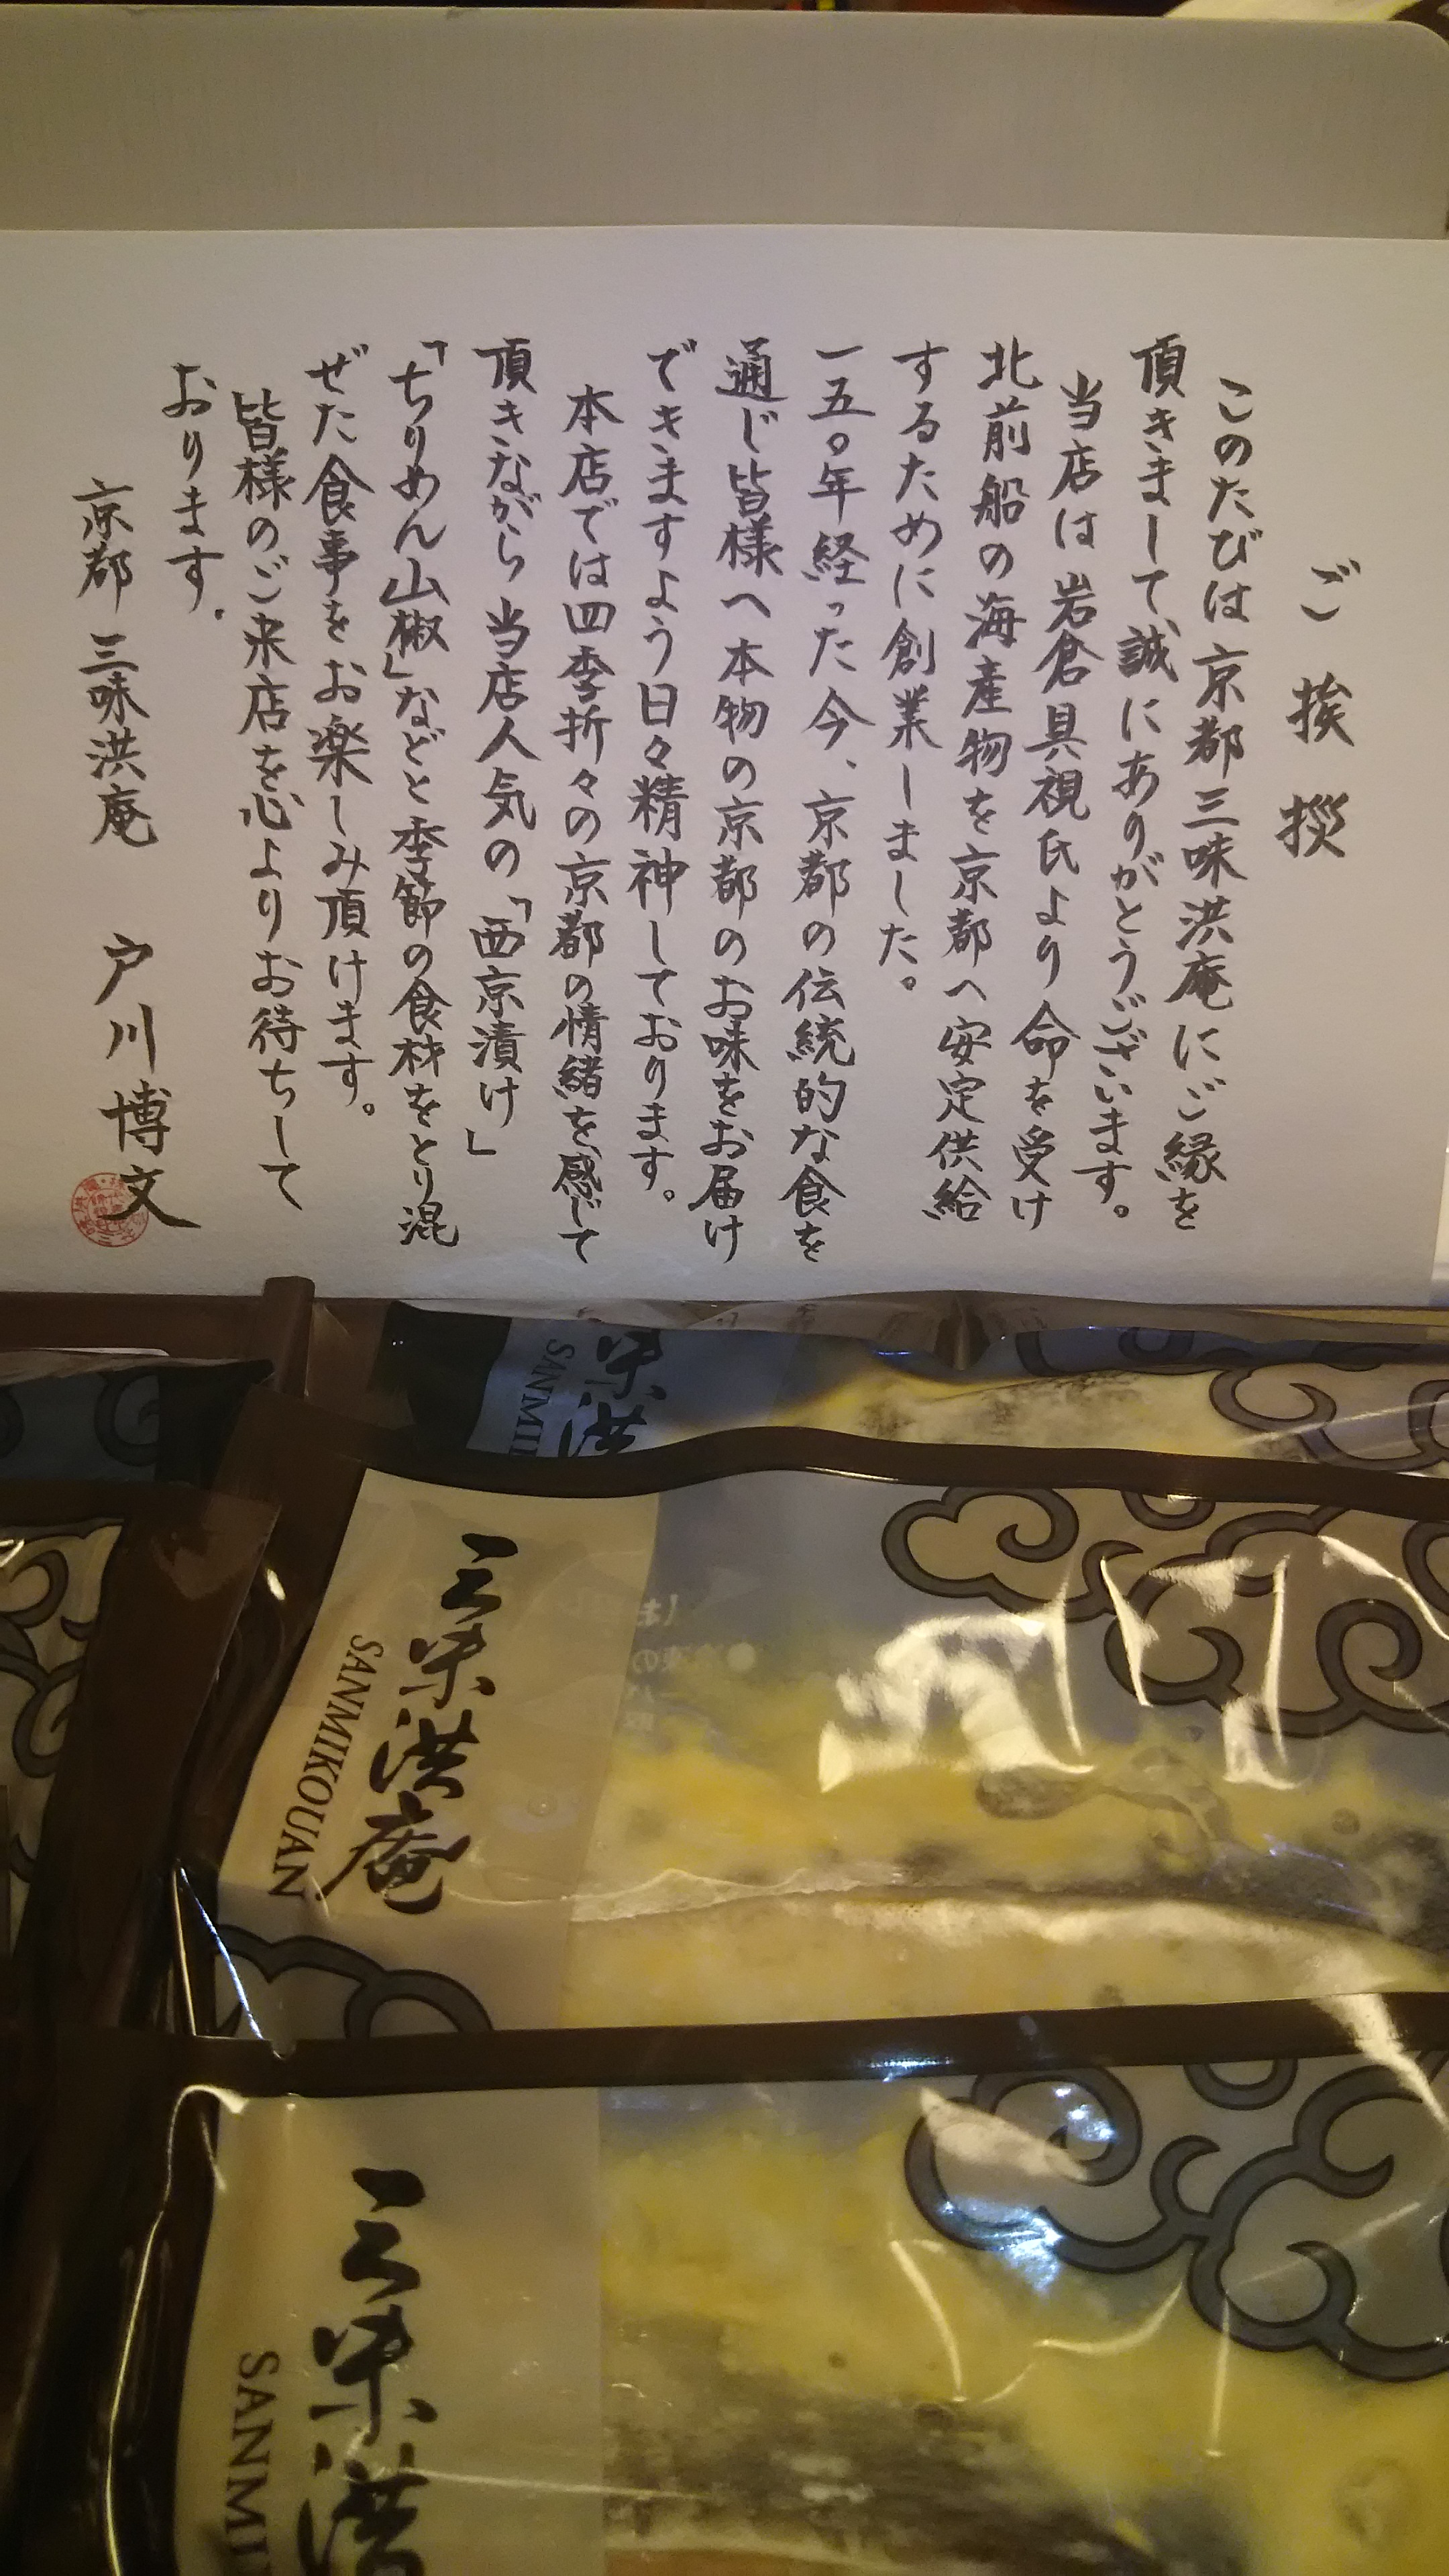 ご挨拶
このたびは京都三味洪庵にご縁を
頂きまして、誠にありがとうございます。
当店は岩倉具視氏より命を受け
北前船の海産物を京都へ安定供給
するために創業しました。
一五〇年経った今、京都の伝統的な食を
通じ皆様へ本物の京都のお味をお届け
できますよう日々精神しております。
本店では四季折々の京都の情緒を感じて
頂きながら当店人気の「西京漬け」
「ちりめん山椒」などと季節の食材をとり混
ぜた食事をお楽しみ頂けます。
皆様のご来店を心よりお待ちして
おります。
京都 三味洪庵 戸川博文
味洪
SANMI
三味洪庵
SANMIKOUAN
三味洪
SANMI